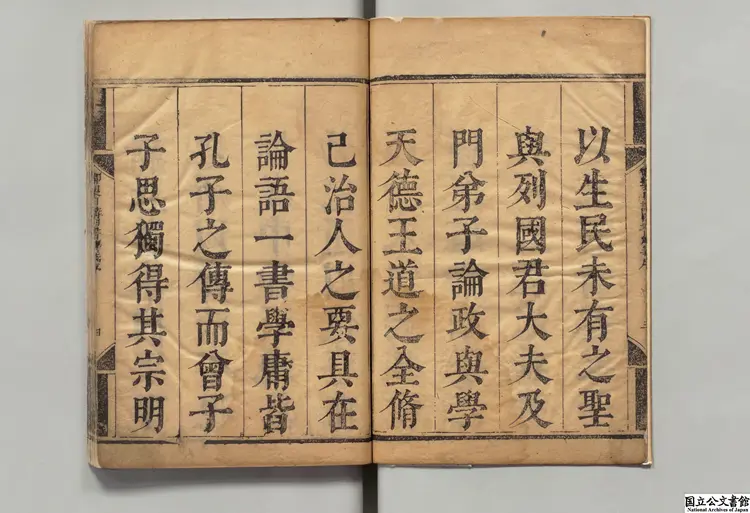 以生民未有之聖
與列國君大夫及
門弟子論政與學
天德王道之全脩
己治人之要具在
論語一書學庸皆
孔子之傳而曾子
子思獨得其宗明
国立公文書館
National Archives of Japan